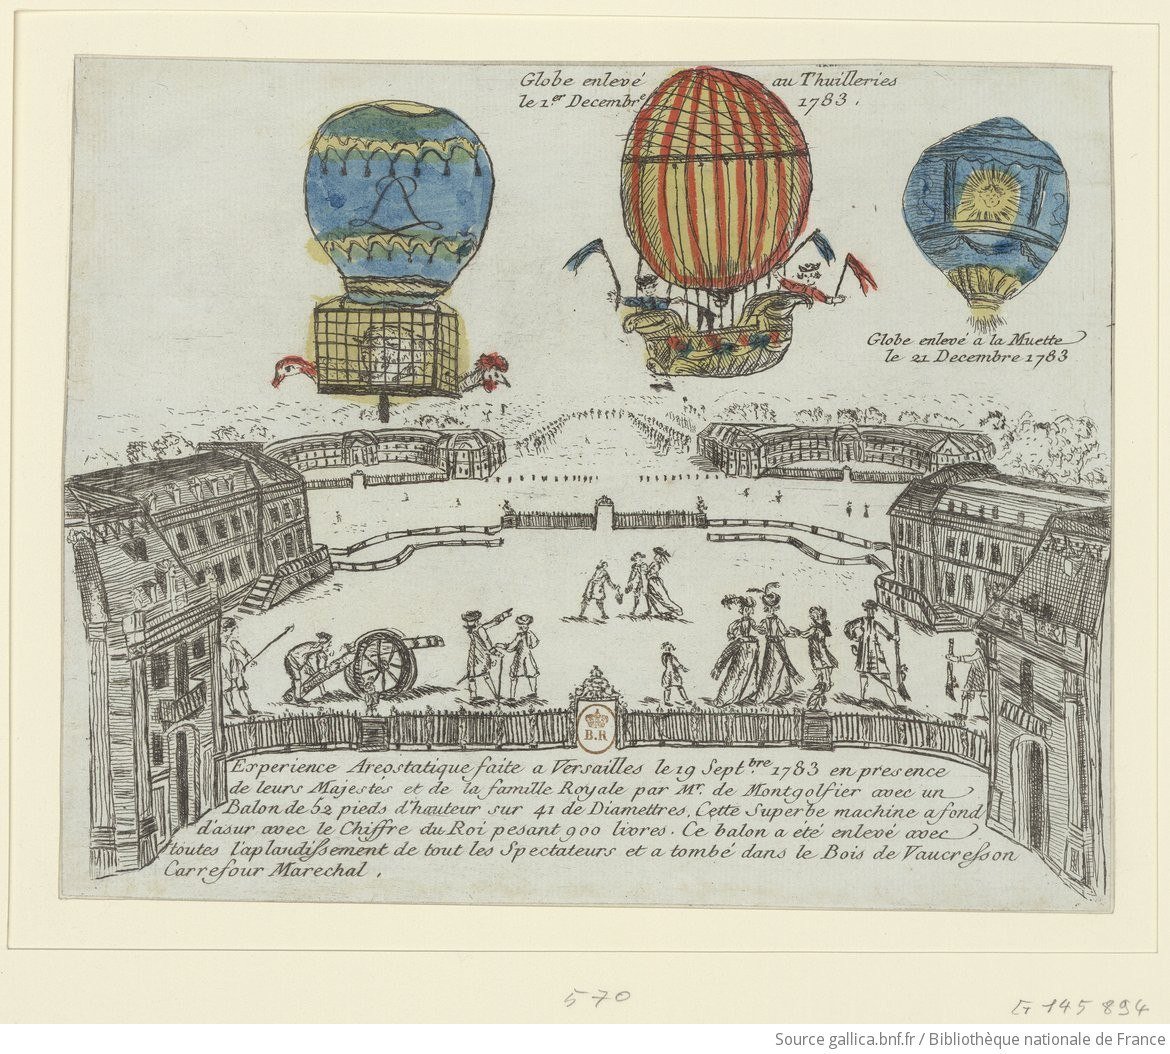 Globe enlevé au Thuilleries
le 1er Decembre 1783.
Globe enlevé a la Muette
le 21 Decembre 1783
B.R
Experience Areostatique faite a Versailles le 19 Septbre. 1783 en presence
de leurs Majestes et de la famille Royale par Mr. de Montgolfier avec un
Balon de 52 pieds d'hauteur sur 41 de Diamettres, Cette Superbe machine a fond
d'asur avec le Chiffre du Roi pesant 900 livres. Ce balon a eté enlevé avec
toutes l'aplaudissement de tout les Spectateurs et a tombé dans le Bois de Vaucresson
Carrefour Marechal,
570
G 145 894
Source gallica.bnf.fr / Bibliothèque nationale de France